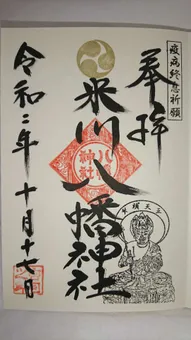 疫病終息祈願
奉拝
氷川八幡神社
八幡神社
牛頭天王
令和二年十月十七日